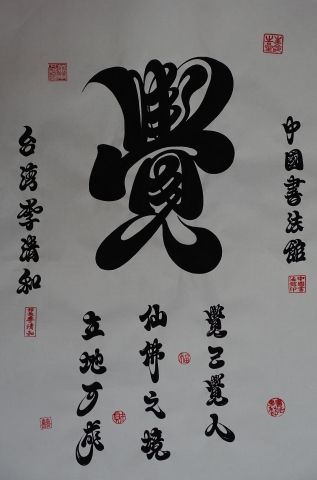 中國書法館
覺
覺己覺人
仙佛之境
立地可成
台湾李清和